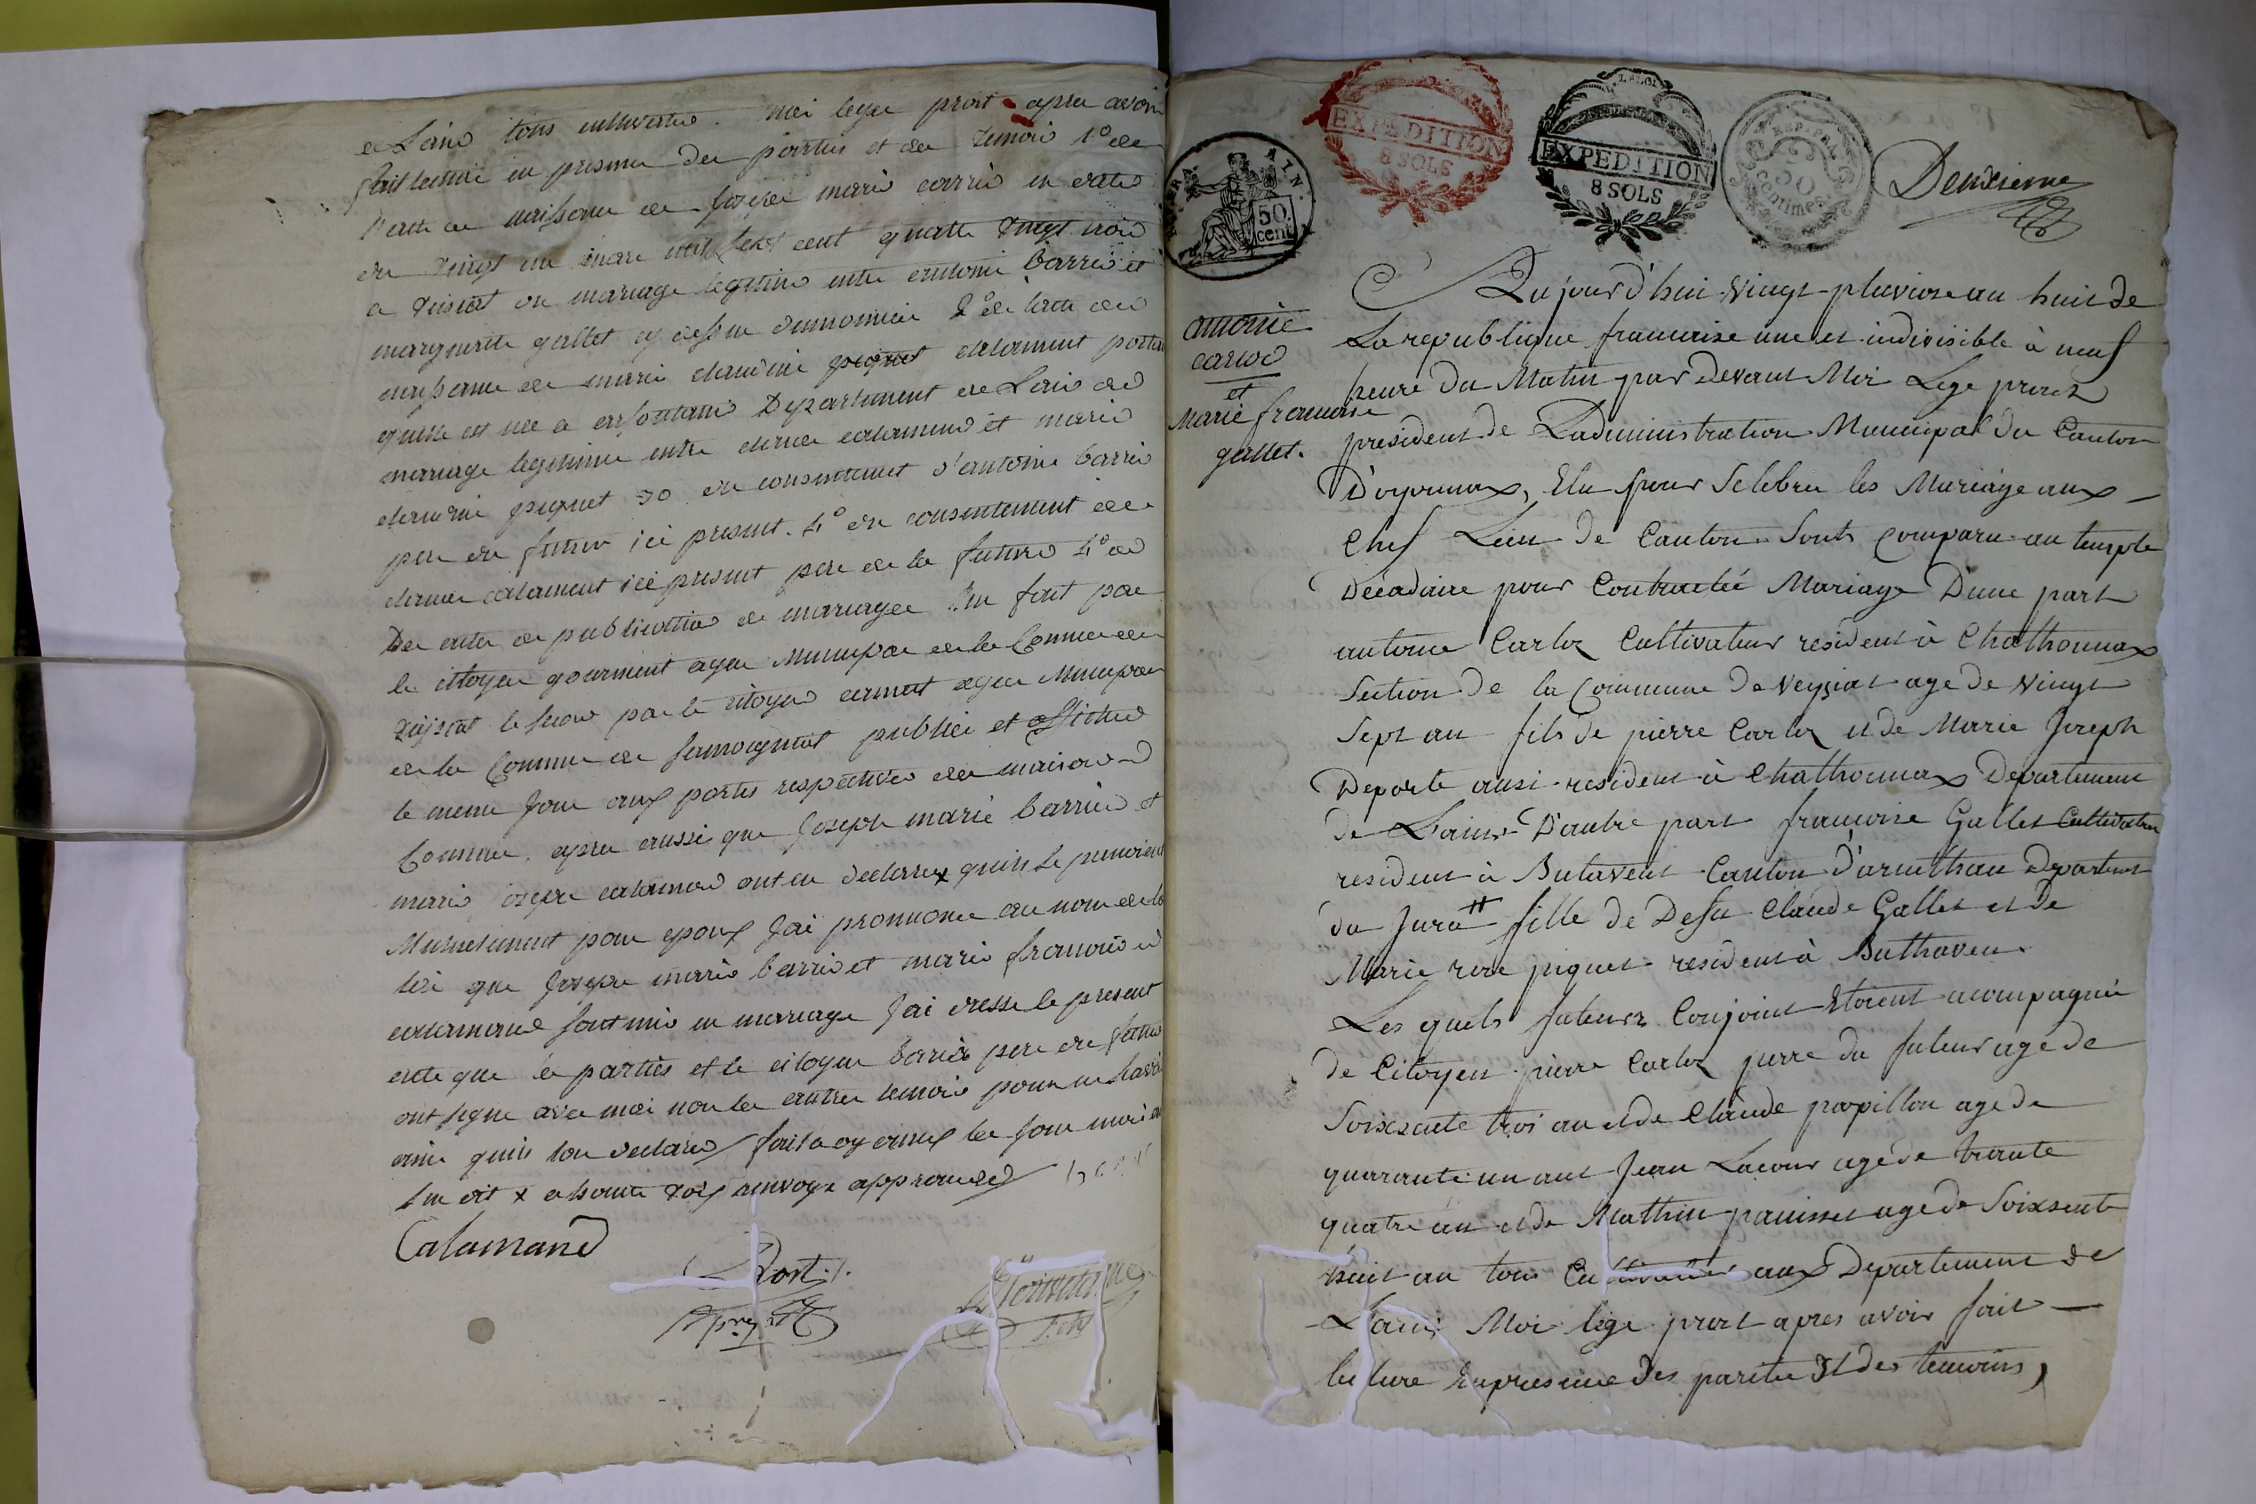 de Lain tous cultivateur. moi lege prost apres avoir
fait lecture en presence des parties et des temoin 1° de
l'acte de naissance de Joseph marie barrie en date
du vingt un mars mil sept cent quatre vingt trois
a veisiat du mariage legitime entre antoine barrie et
marguerite gallet cy dessu denommée 2° de l'acte de
naissance de marie claudine piquet calament portant
quelle est née a arfontaine Departement de Lain du
mariage legitime entre claude calamend et marie
claudine piquet 3° du consentement d'antoine barrie
pere du futur ici present. 4° du consentement de
claude calament ici present pere de la future 4° de
De acte de publication de mariage un fait par
le citoyen gourmont agen Municipal de la Commune de
veysiat le secon par le citoyen agen Municipal
de la Commune de Samognat publiée et affichée
le meme Jour aux portes respective des maison
Commune. apres aussi que Joseph marie barrie et
marie calamand ont eu declarer quils se prenoient
Mutuelement pour epoux Jai prononcé au nom de la
loi que Joseph marie barrie et marie francoise
calamand sont uni en mariage Jai dressé le present
acte que les parties et le citoyen barrie pere du futur
ont signe avec moi non les autres temoin pour ne savoir
ainsi quils lon declaré fait a oyonnax les jour mois
an dit x renvoy approuvé
Calamand
Prost
Presdt
EXPEDITION
8 SOLS
LA LOI
EXPEDITION
8 SOLS
REP. FRA.
50
Centimes
50.
cent
Deuxieme
antoine
carlod
et
Marie francoise
gallet.
Aujourd'hui vingt pluviose an huit de
La republique francaise une et indivisible à neuf
heure du Matin par devant Moi Lege prost
president de Ladministration Municipal du Canton
D'oyonnax, Elu pour Selebrer les Mariage aux
Chef Lieu de Canton Sont Comparu au temple
Décadaire pour Contracté Mariage Dune part
antoine Carloz Cultivateur resident à Chathonnax
Section de la Commune de Veysiat age de vingt
Sept an fils de pierre Carloz et de Marie Joseph
Deporte ausi resident à Chathonnax Departement
de Lain D'autre part francoise Gallet Cultivatrice
resident à Butavent Canton D'arinthau Departement
du Jura # fille de Defu Claude Gallet et de
Marie rose piquet resident à Buthaven.
Les quels futeurs Conjoint Etoient acompagnié
de Citoyen pierre Carloz perre du futeur age de
Soixsente troi an et de Claude papillon age de
quarante un ant Jean Lacour age de trante
quatre an et de Mathieu panisset age de Soixsente
huit an tous Cultivateur aux Departement de
Lain Moi lége prost apres avoir fait
lecture Enpresence des partie Et des temoins,